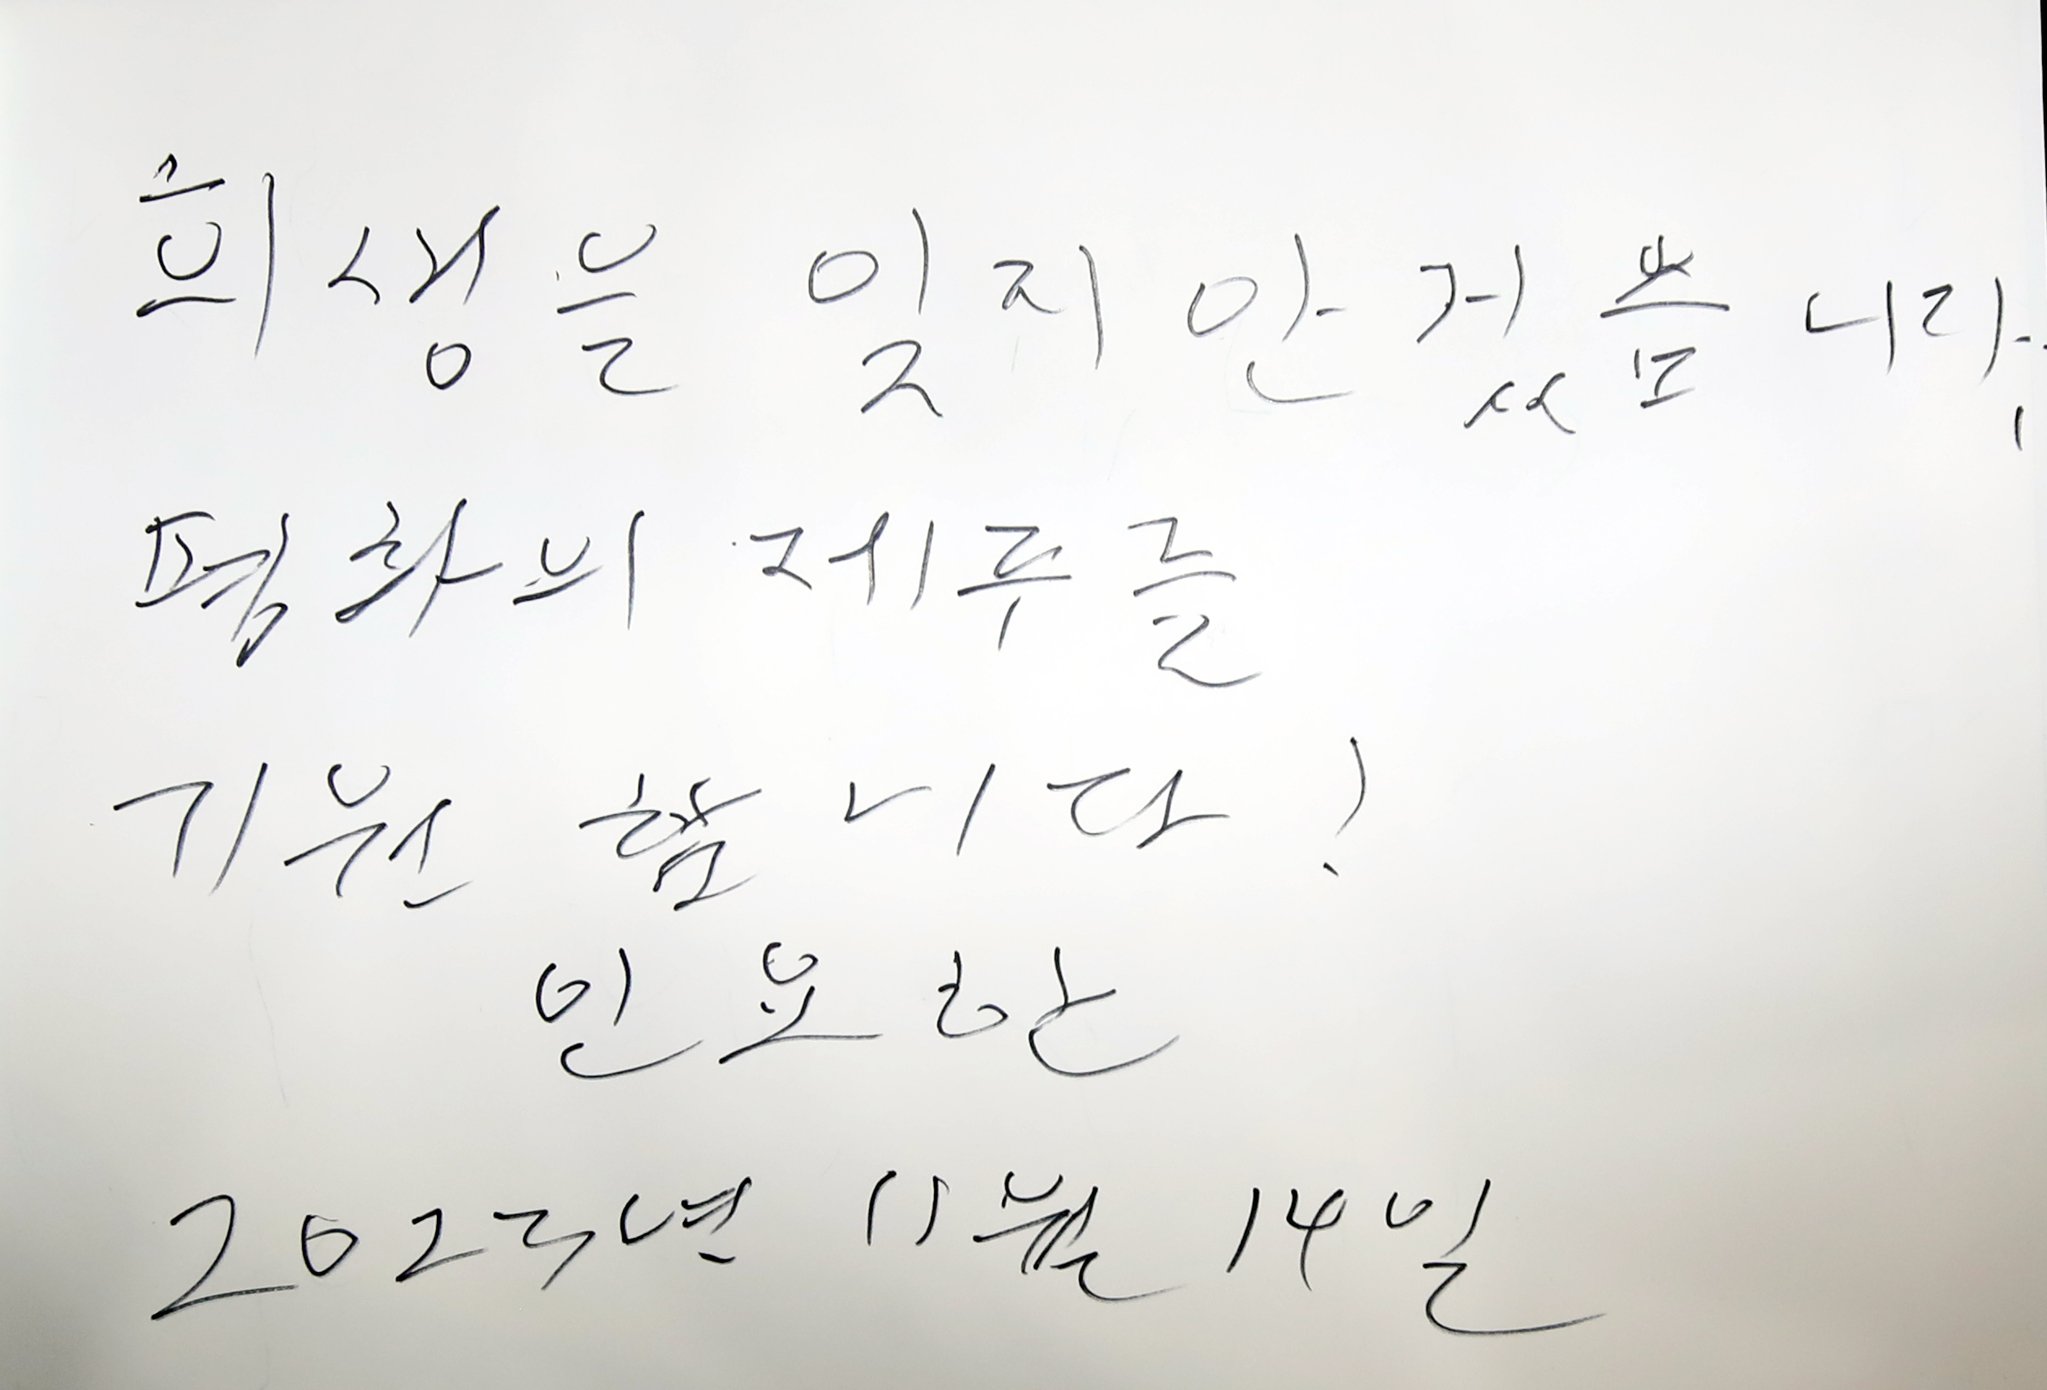 희생을 잊지 안겄씀니다.
평화의 제주를
기원 함니다!
인요한
2023년 11월 14일